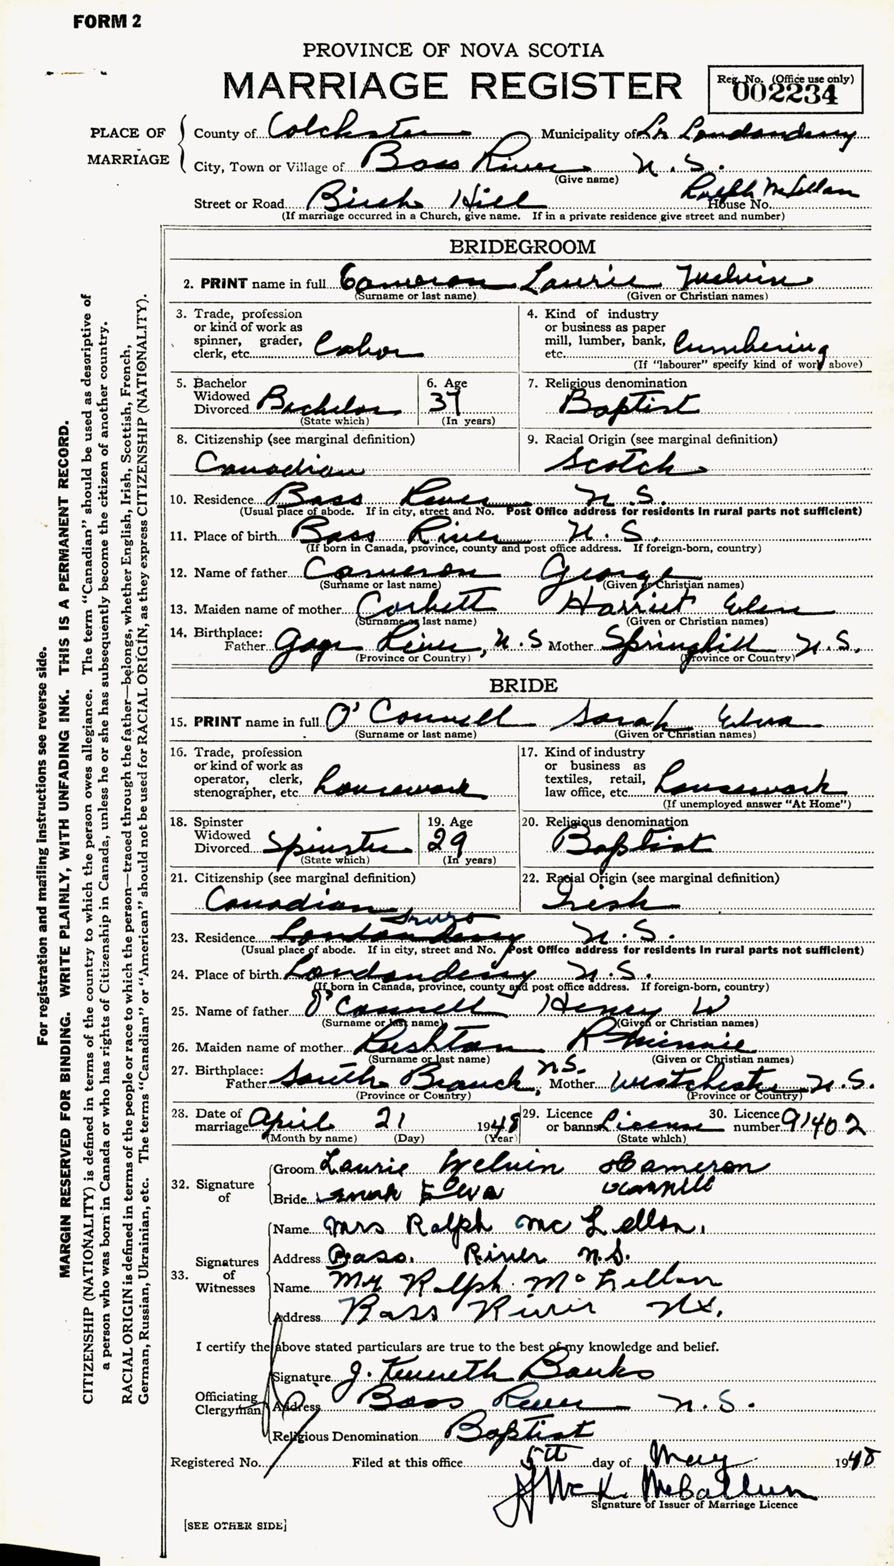 FORM 2
PROVINCE OF NOVA SCOTIA
MARRIAGE REGISTER
Reg. No. (Office use only)
002234
PLACE OF MARRIAGE
County of Colchester Municipality of Lr Londonderry
City, Town or Village of Bass River N.S.
(Give name)
Ralph McLellan
Street or Road Birch Hill House No.
(If marriage occurred in a Church, give name. If in a private residence give street and number)
BRIDEGROOM
2. PRINT name in full Cameron Laurie Melvin
(Surname or last name) (Given or Christian names)
3. Trade, profession or kind of work as spinner, grader, clerk, etc. Labor
4. Kind of industry or business as paper mill, lumber, bank, etc. Lumbering
(If "labourer" specify kind of work above)
5. Bachelor Widowed Divorced Bachelor
(State which)
6. Age 37
(In years)
7. Religious denomination
Baptist
8. Citizenship (see marginal definition)
Canadian
9. Racial Origin (see marginal definition)
Scotch
10. Residence Bass River N.S.
(Usual place of abode. If in city, street and No. Post Office address for residents in rural parts not sufficient)
11. Place of birth Bass River N.S.
(If born in Canada, province, county and post office address. If foreign-born, country)
12. Name of father Cameron George
(Surname or last name) (Given or Christian names)
13. Maiden name of mother Corbett Harriet Elen
(Surname or last name) (Given or Christian names)
14. Birthplace: Father River, N.S Mother Springhill N.S.
(Province or Country) (Province or Country)
BRIDE
15. PRINT name in full O'Connell Sarah Elva
(Surname or last name) (Given or Christian names)
16. Trade, profession or kind of work as operator, clerk, stenographer, etc. housework
17. Kind of industry or business as textiles, retail, law office, etc. housework
(If unemployed answer "At Home")
18. Spinster Widowed Divorced Spinster
(State which)
19. Age 29
(In years)
20. Religious denomination
Baptist
21. Citizenship (see marginal definition)
Canadian
22. Racial Origin (see marginal definition)
Irish
Truro
23. Residence Londonderry N.S.
(Usual place of abode. If in city, street and No. Post Office address for residents in rural parts not sufficient)
24. Place of birth Londonderry N.S.
(If born in Canada, province, county and post office address. If foreign-born, country)
25. Name of father O'Connell Henry W
(Surname or last name) (Given or Christian names)
26. Maiden name of mother Rushton R Minnie
(Surname or last name) (Given or Christian names)
27. Birthplace: Father South Branch, N.S. Mother Westchester N.S.
(Province or Country) (Province or Country)
28. Date of marriage April 21 1948
(Month by name) (Day) (Year)
29. Licence or banns License
(State which)
30. Licence number 91402
32. Signature of
Groom Laurie Melvin Cameron
Bride Sarah Elva oconnell
33. Signatures of Witnesses
Name Mrs Ralph McLellan.
Address Bass. River N.S.
Name Mr Ralph McLellan
Address Bass River N.S.
I certify the above stated particulars are true to the best of my knowledge and belief.
Officiating Clergyman
Signature J. Kenneth Banks
Address Bass River N.S.
Religious Denomination Baptist
Registered No. Filed at this office 5th day of May 1948
McCallum
Signature of Issuer of Marriage Licence
[SEE OTHER SIDE]
For registration and mailing instructions see reverse side.
MARGIN RESERVED FOR BINDING. WRITE PLAINLY, WITH UNFADING INK. THIS IS A PERMANENT RECORD.
CITIZENSHIP (NATIONALITY) is defined in terms of the country to which the person owes allegiance. The term "Canadian" should be used as descriptive of
a person who was born in Canada or who has rights of Citizenship in Canada, unless he or she has subsequently become the citizen of another country.
RACIAL ORIGIN is defined in terms of the people or race to which the person—traced through the father—belongs, whether English, Irish, Scottish, French,
German, Russian, Ukrainian, etc. The terms "Canadian" or "American" should not be used for RACIAL ORIGIN, as they express CITIZENSHIP (NATIONALITY).